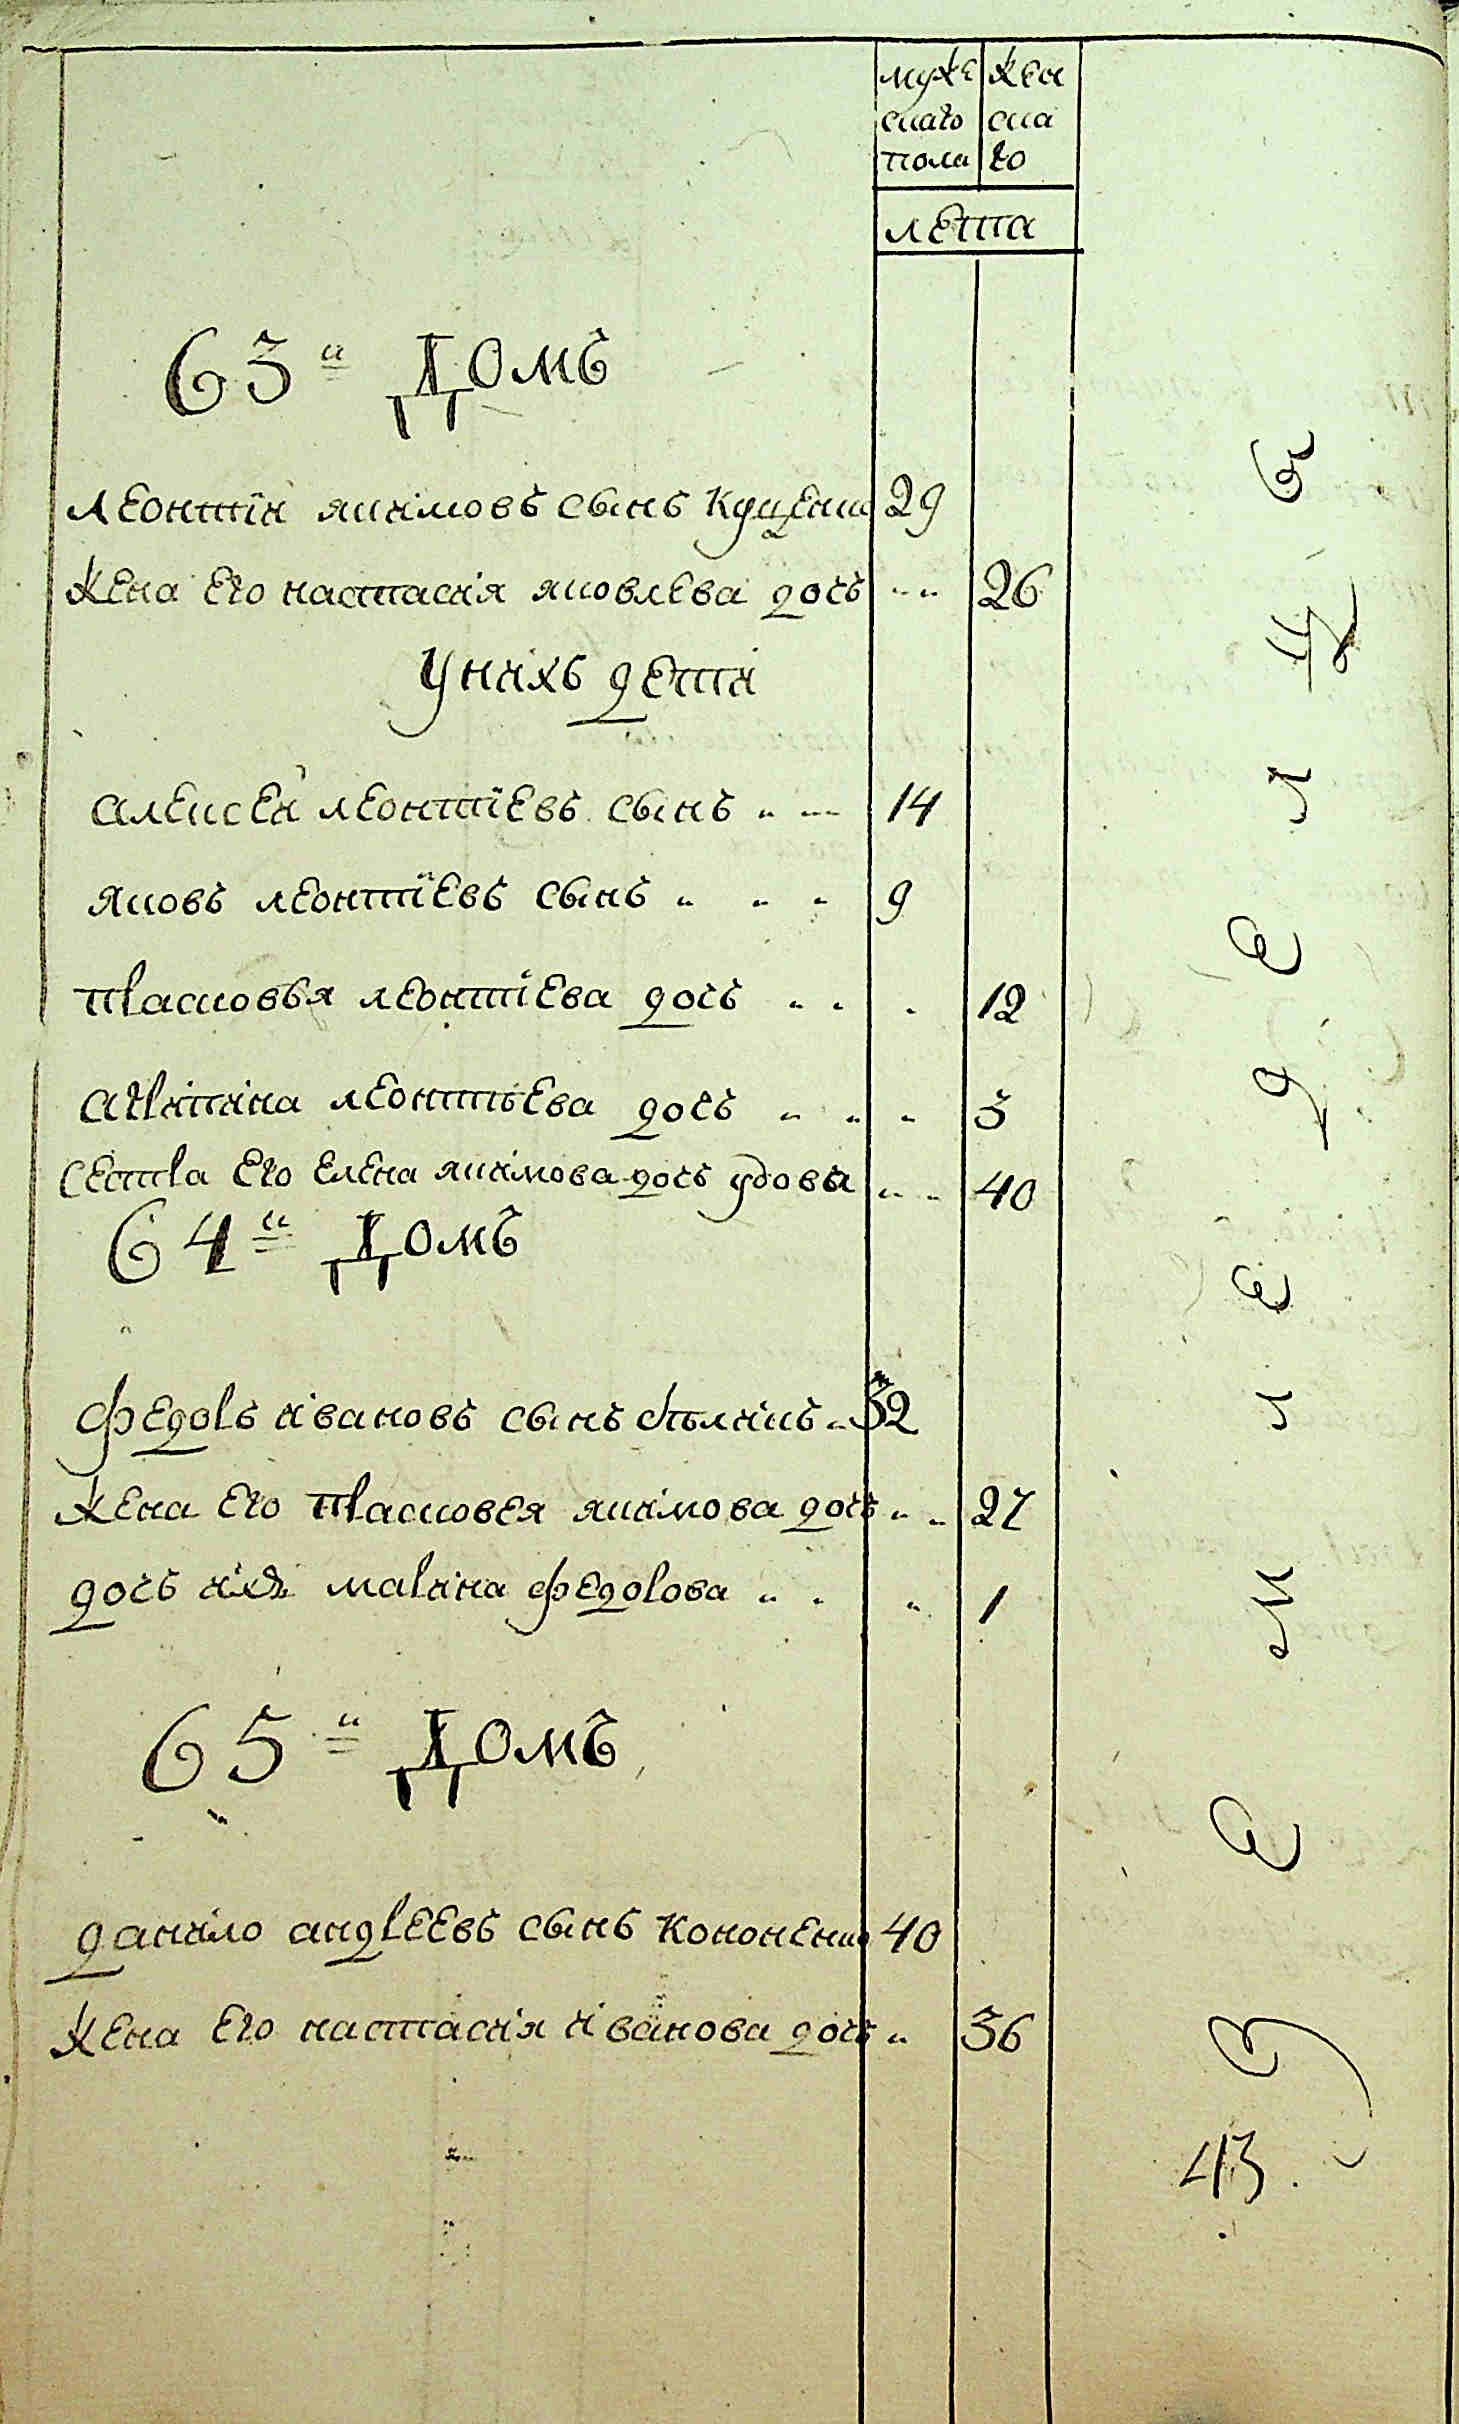 муже жен
скаго ска
пола го
лета
63й Домъ
леонтий якимовъ сынъ куценко 29
жена его настасия яковлева дочь 26
у нихъ дети
алексей леонтиевъ сынъ 14
яковъ леонтиевъ сынъ 9
прасковья леонтиева дочь 12
агрипина леонтьева дочь 3
сестра его елена якимова дочь удова 40
64й Домъ
федоръ ивановъ сынъ 32
жена его прасковея якимова дочь 27
дочь ихъ марина федорова 1
65й Домъ
данило андреевъ сынъ кононенко 40
жена его настасия иванова дочь 36
43